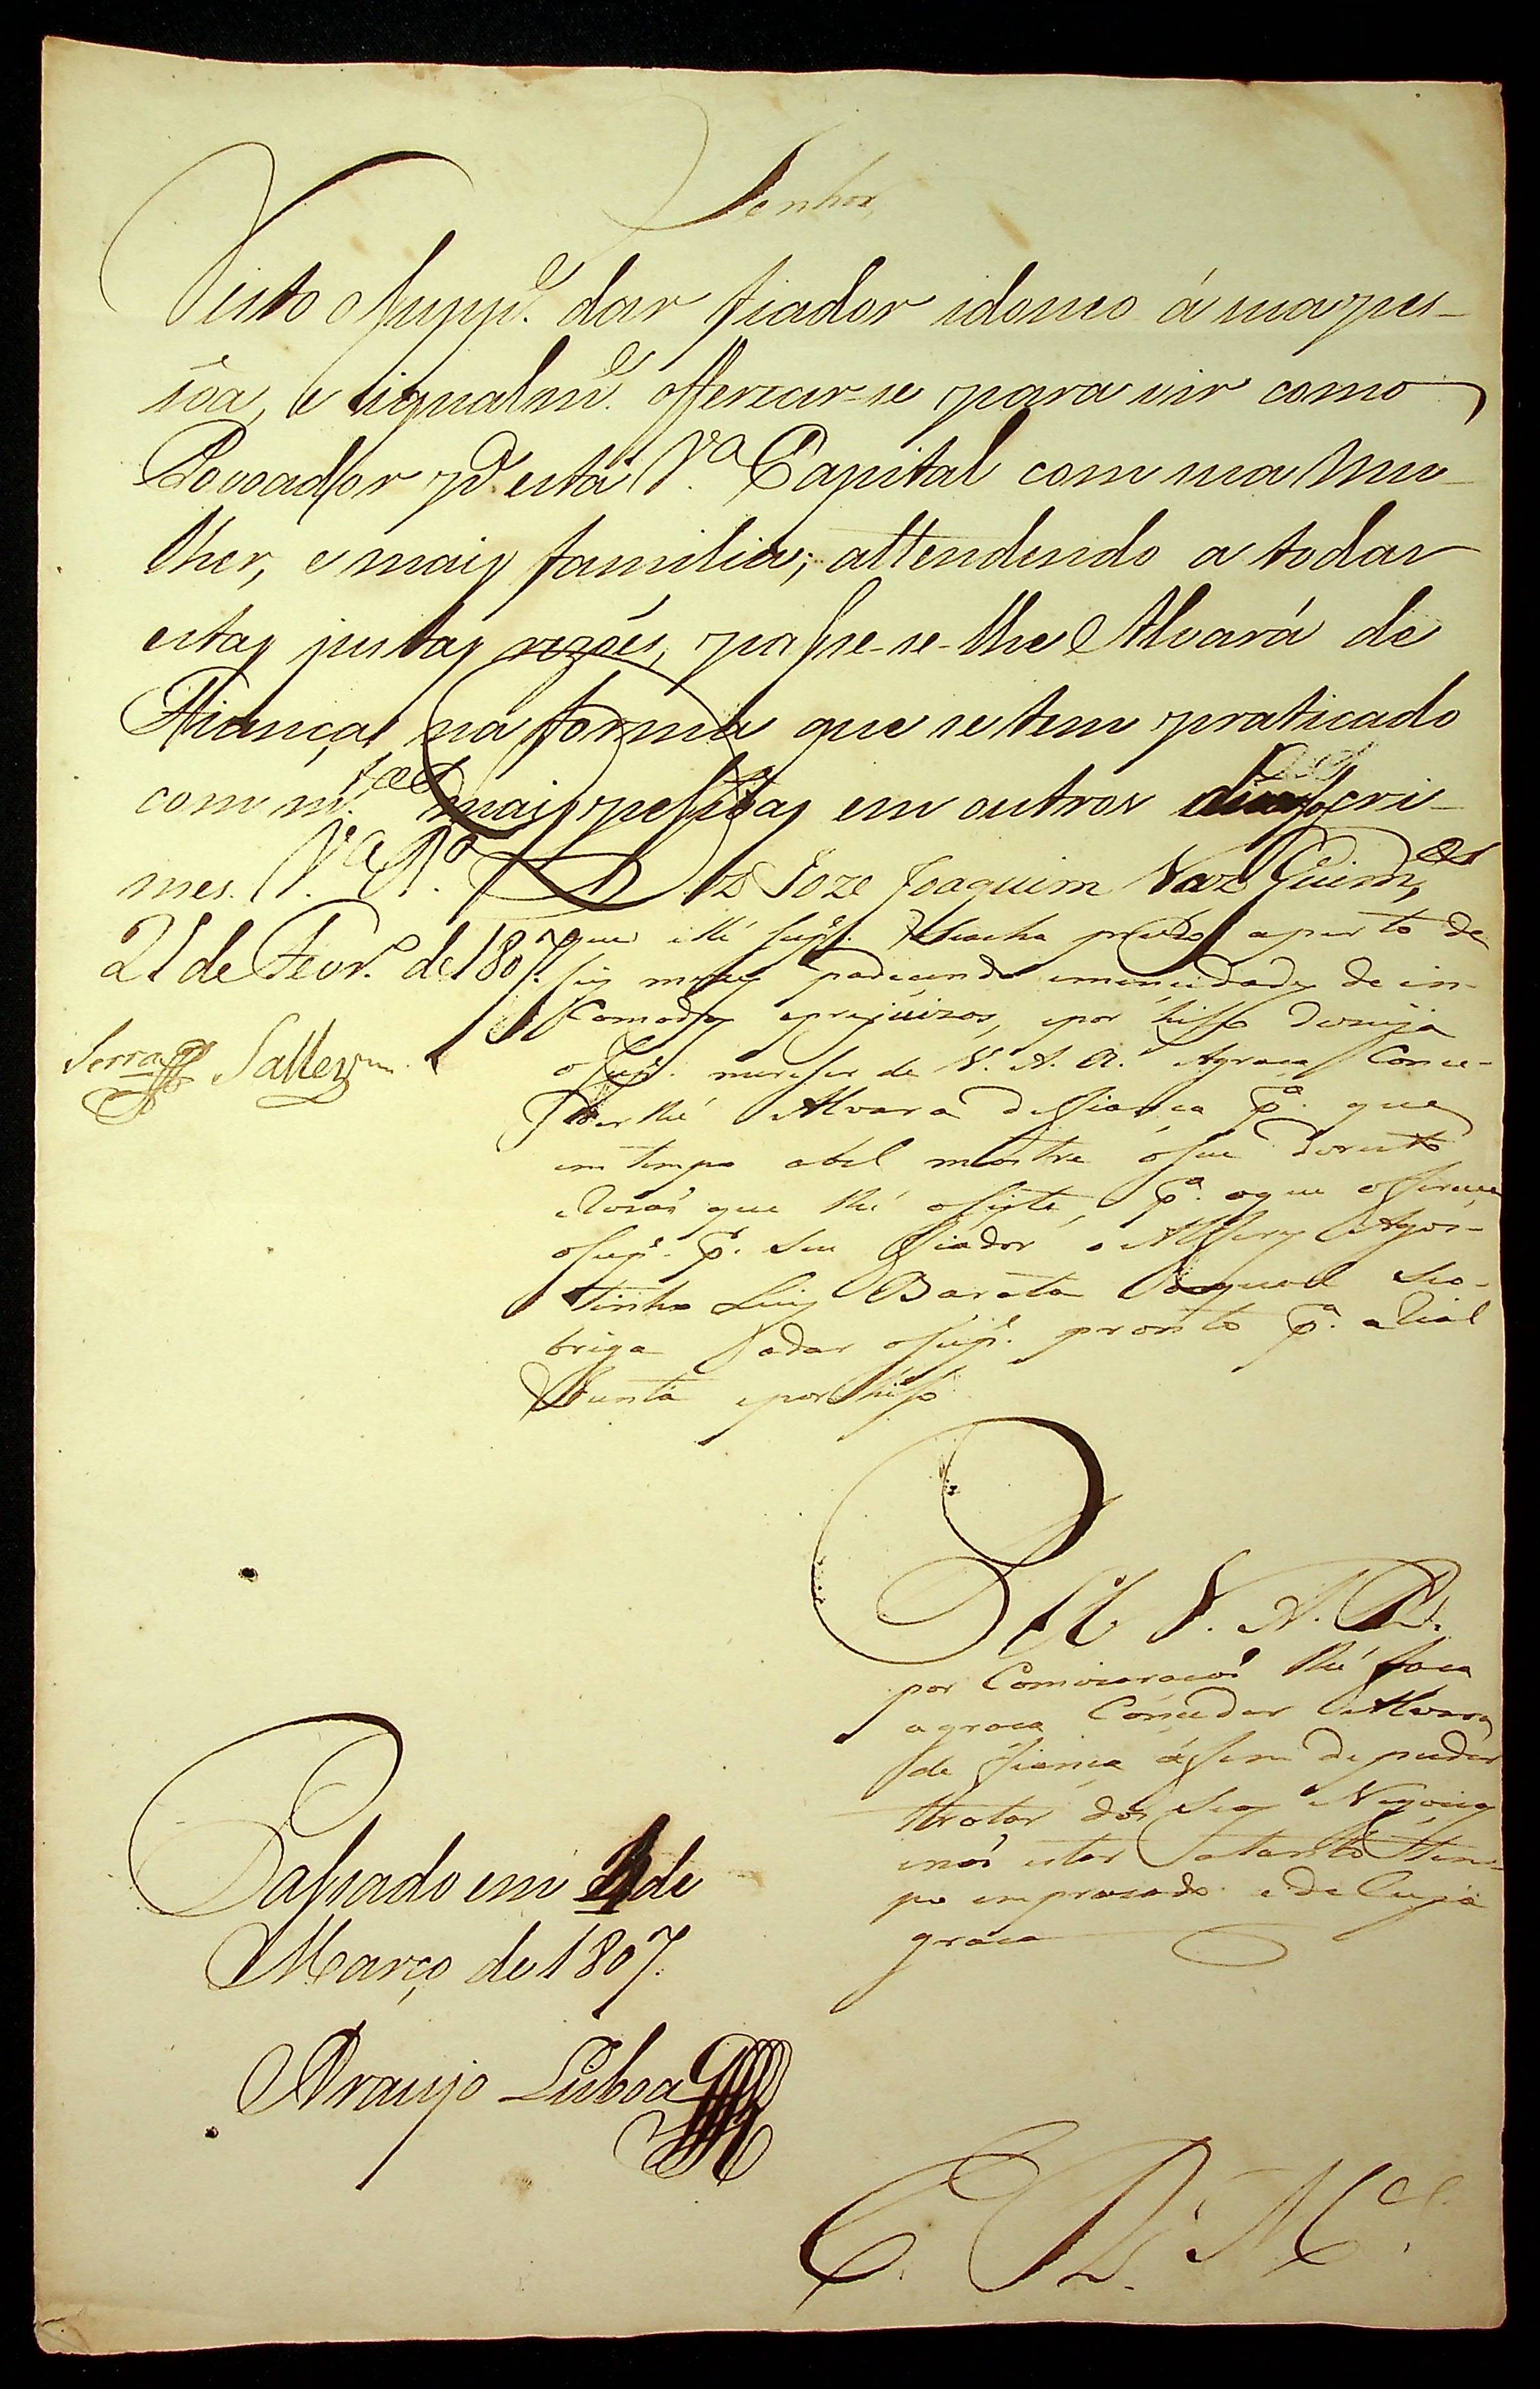 Senhor
Visto o Supp.e dar fiador idoneo á sua pes-
sôa, e igualm.e offerecer-se para vir como
Povoador p.a esta V.a Capital com sua Mu-
lher, e mais familia; attendendo a todas
estas justas rezões, passe-se-lhe Alvará de
Fiança, na forma que se tem praticado
com m.tas mais pessoas em outros cri-
mes. V.a B.a
21 de Fevr.o de 1807.
Serra Salles
Diz Joze Joaquim Vaz Guim.es
que elle Sup.e Se acha prezo a perto de
seis mezes padecendo emencidade de in-
Comodos e prejuizos, e por hisso dezeja
o Sup.e mereser de V. A. R. A graca Conce-
der lhe Alvara de fianca p.a que
em tempo abel mostre o seu dereito
e Rozão que lhe asiste, p.a o que oferece
o Sup.e p.r Seu fiador o Alferes Agos-
tinho Luis Barata o qual Se o-
briga a dar o Sup.e pronto p.a a Rial
Junta e por hisso
P. A V. A. R.
por Comizaracão lhe faca
a graca Conceder Alvara
de fianca á fim de puder
tratar dos Seos Negocios
e não estar a tanto tem-
po emprazado e de Cuja
graca
Passado em 4 de
Março de 1807.
Araujo Lisboa
E. R. M.ce